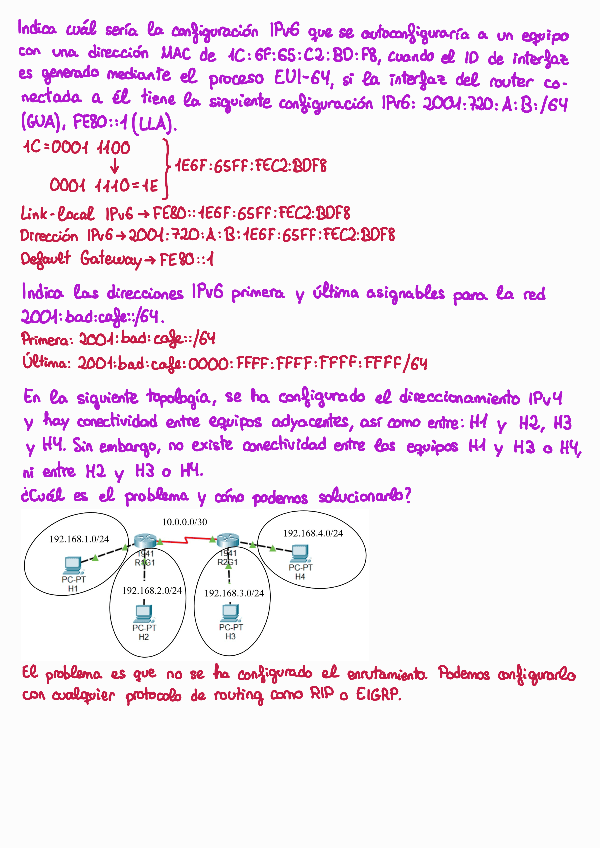 Indica cuál sería la configuración IPv6 que se autoconfiguraría a un equipo
con una dirección MAC de 1C:6F:65:C2:BD:F8, cuando el ID de interfaz
es generado mediante el proceso EUI-64, si la interfaz del router co-
nectada a él tiene la siguiente configuración IPv6: 2001:720:A:B:/64
(GUA), FE80::1 (LLA).
1C=0001 1100
↓
0001 1110=1E
1E6F:65FF:FEC2:BDF8
Link-local IPv6→FE80::1E6F:65FF:FEC2:BDF8
Dirección IPv6→2001:720:A:B:1E6F:65FF:FEC2:BDF8
Default Gateway→FE80::1
Indica las direcciones IPv6 primera y última asignables para la red
2001:bad:cafe::/64.
Primera: 2001:bad:cafe::/64
Última: 2001:bad:cafe:0000:FFFF:FFFF:FFFF:FFFF/64
En la siguiente topología, se ha configurado el direccionamiento IPv4
y hay conectividad entre equipos adyacentes, así como entre: H1 y H2, H3
y H4. Sin embargo, no existe conectividad entre los equipos H1 y H3 o H4,
ni entre H2 y H3 o H4.
¿Cuál es el problema y cómo podemos solucionarlo?
10.0.0.0/30
192.168.1.0/24
192.168.4.0/24
1941
R1G1
1941
R2G1
PC-PT
H1
PC-PT
H4
192.168.2.0/24
192.168.3.0/24
PC-PT
H2
PC-PT
H3
El problema es que no se ha configurado el enrutamiento. Podemos configurarlo
con cualquier protocolo de routing como RIP o EIGRP.